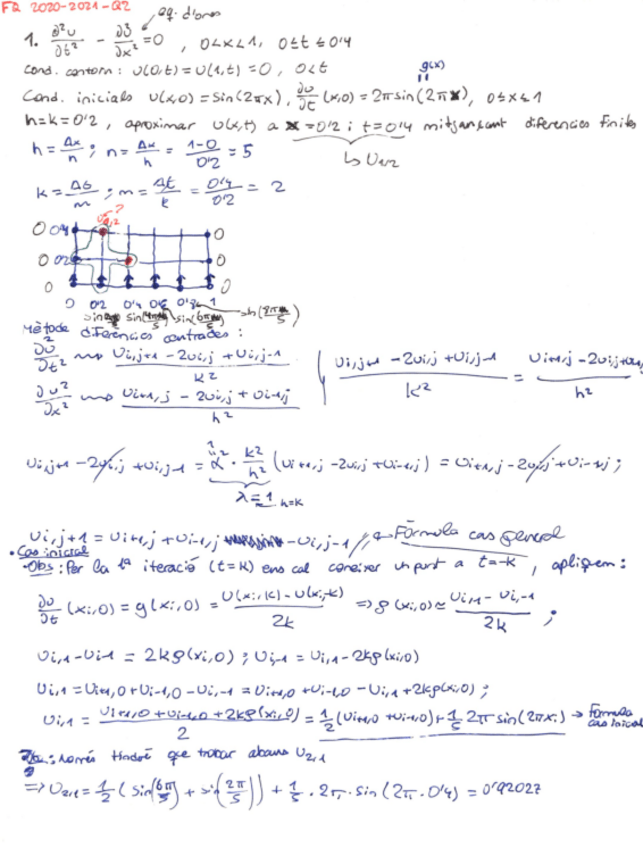 FR 2020-2021-Q2
eq. d'ones
1. ∂²u/∂t² - ∂²u/∂x² = 0 , 0<x<1, 0≤t≤0'4
Cond. contorn: u(0,t)=u(1,t)=0 , 0<t
g(x)
Cond. inicials u(x,0)=sin(2πx), ∂u/∂t (x,0)=2πsin(2πx), 0≤x≤1
h=k=0'2 , aproximar u(x,t) a x=0'2 i t=0'4 mitjançant diferències finites
h = Δx/n ; n = Δx/h = 1-0/0'2 = 5
↳ U1,2
k = Δt/m ; m = Δt/k = 0'4/0'2 = 2
U1,2 ?
0 0'4 0
0 0'2 0
0 0
0 0'2 0'4 0'6 0'8 1
sin(4π/5) sin(6π/5) sin(8π/5)
Mètode diferències centrades:
∂u²/∂t² ⇝ ui,j+1 - 2ui,j + ui,j-1 / k²
∂u²/∂x² ⇝ ui+1,j - 2ui,j + ui-1,j / h²
ui,j+1 - 2ui,j + ui,j-1 / k² = ui+1,j - 2ui,j+ui-1,j / h²
ui,j+1 - 2ui,j + ui,j-1 = α² · k²/h² (ui+1,j - 2ui,j + ui-1,j) = ui+1,j - 2ui,j + ui-1,j ;
λ=1 h=k
ui,j+1 = ui+1,j + ui-1,j - ui,j-1 // ← Fórmula cas general
• Cas inicial
• Obs: Per la 1ª iteració (t=k) ens cal conèixer un punt a t=-k , apliquem:
∂u/∂t (xi,0) = g(xi,0) = u(xi,k) - u(xi,-k) / 2k ⇒ g(xi,0) ≈ ui,1 - ui,-1 / 2k ;
ui,1 - ui,-1 = 2kg(xi,0) ; ui,-1 = ui,1 - 2kg(xi,0)
ui,1 = ui+1,0 + ui-1,0 - ui,-1 = ui+1,0 + ui-1,0 - ui,1 + 2kg(xi,0) ;
ui,1 = ui+1,0 + ui-1,0 + 2kg(xi,0) / 2 = 1/2 (ui+1,0 + ui-1,0) + 1/5 2π sin(2πxi) → Fórmula cas inicial
: només tindré que trobar abans U2,1
⇒ U2,1 = 1/2 ( sin(6π/5) + sin(2π/5) ) + 1/5 · 2π · sin(2π · 0'4) = 0'92027